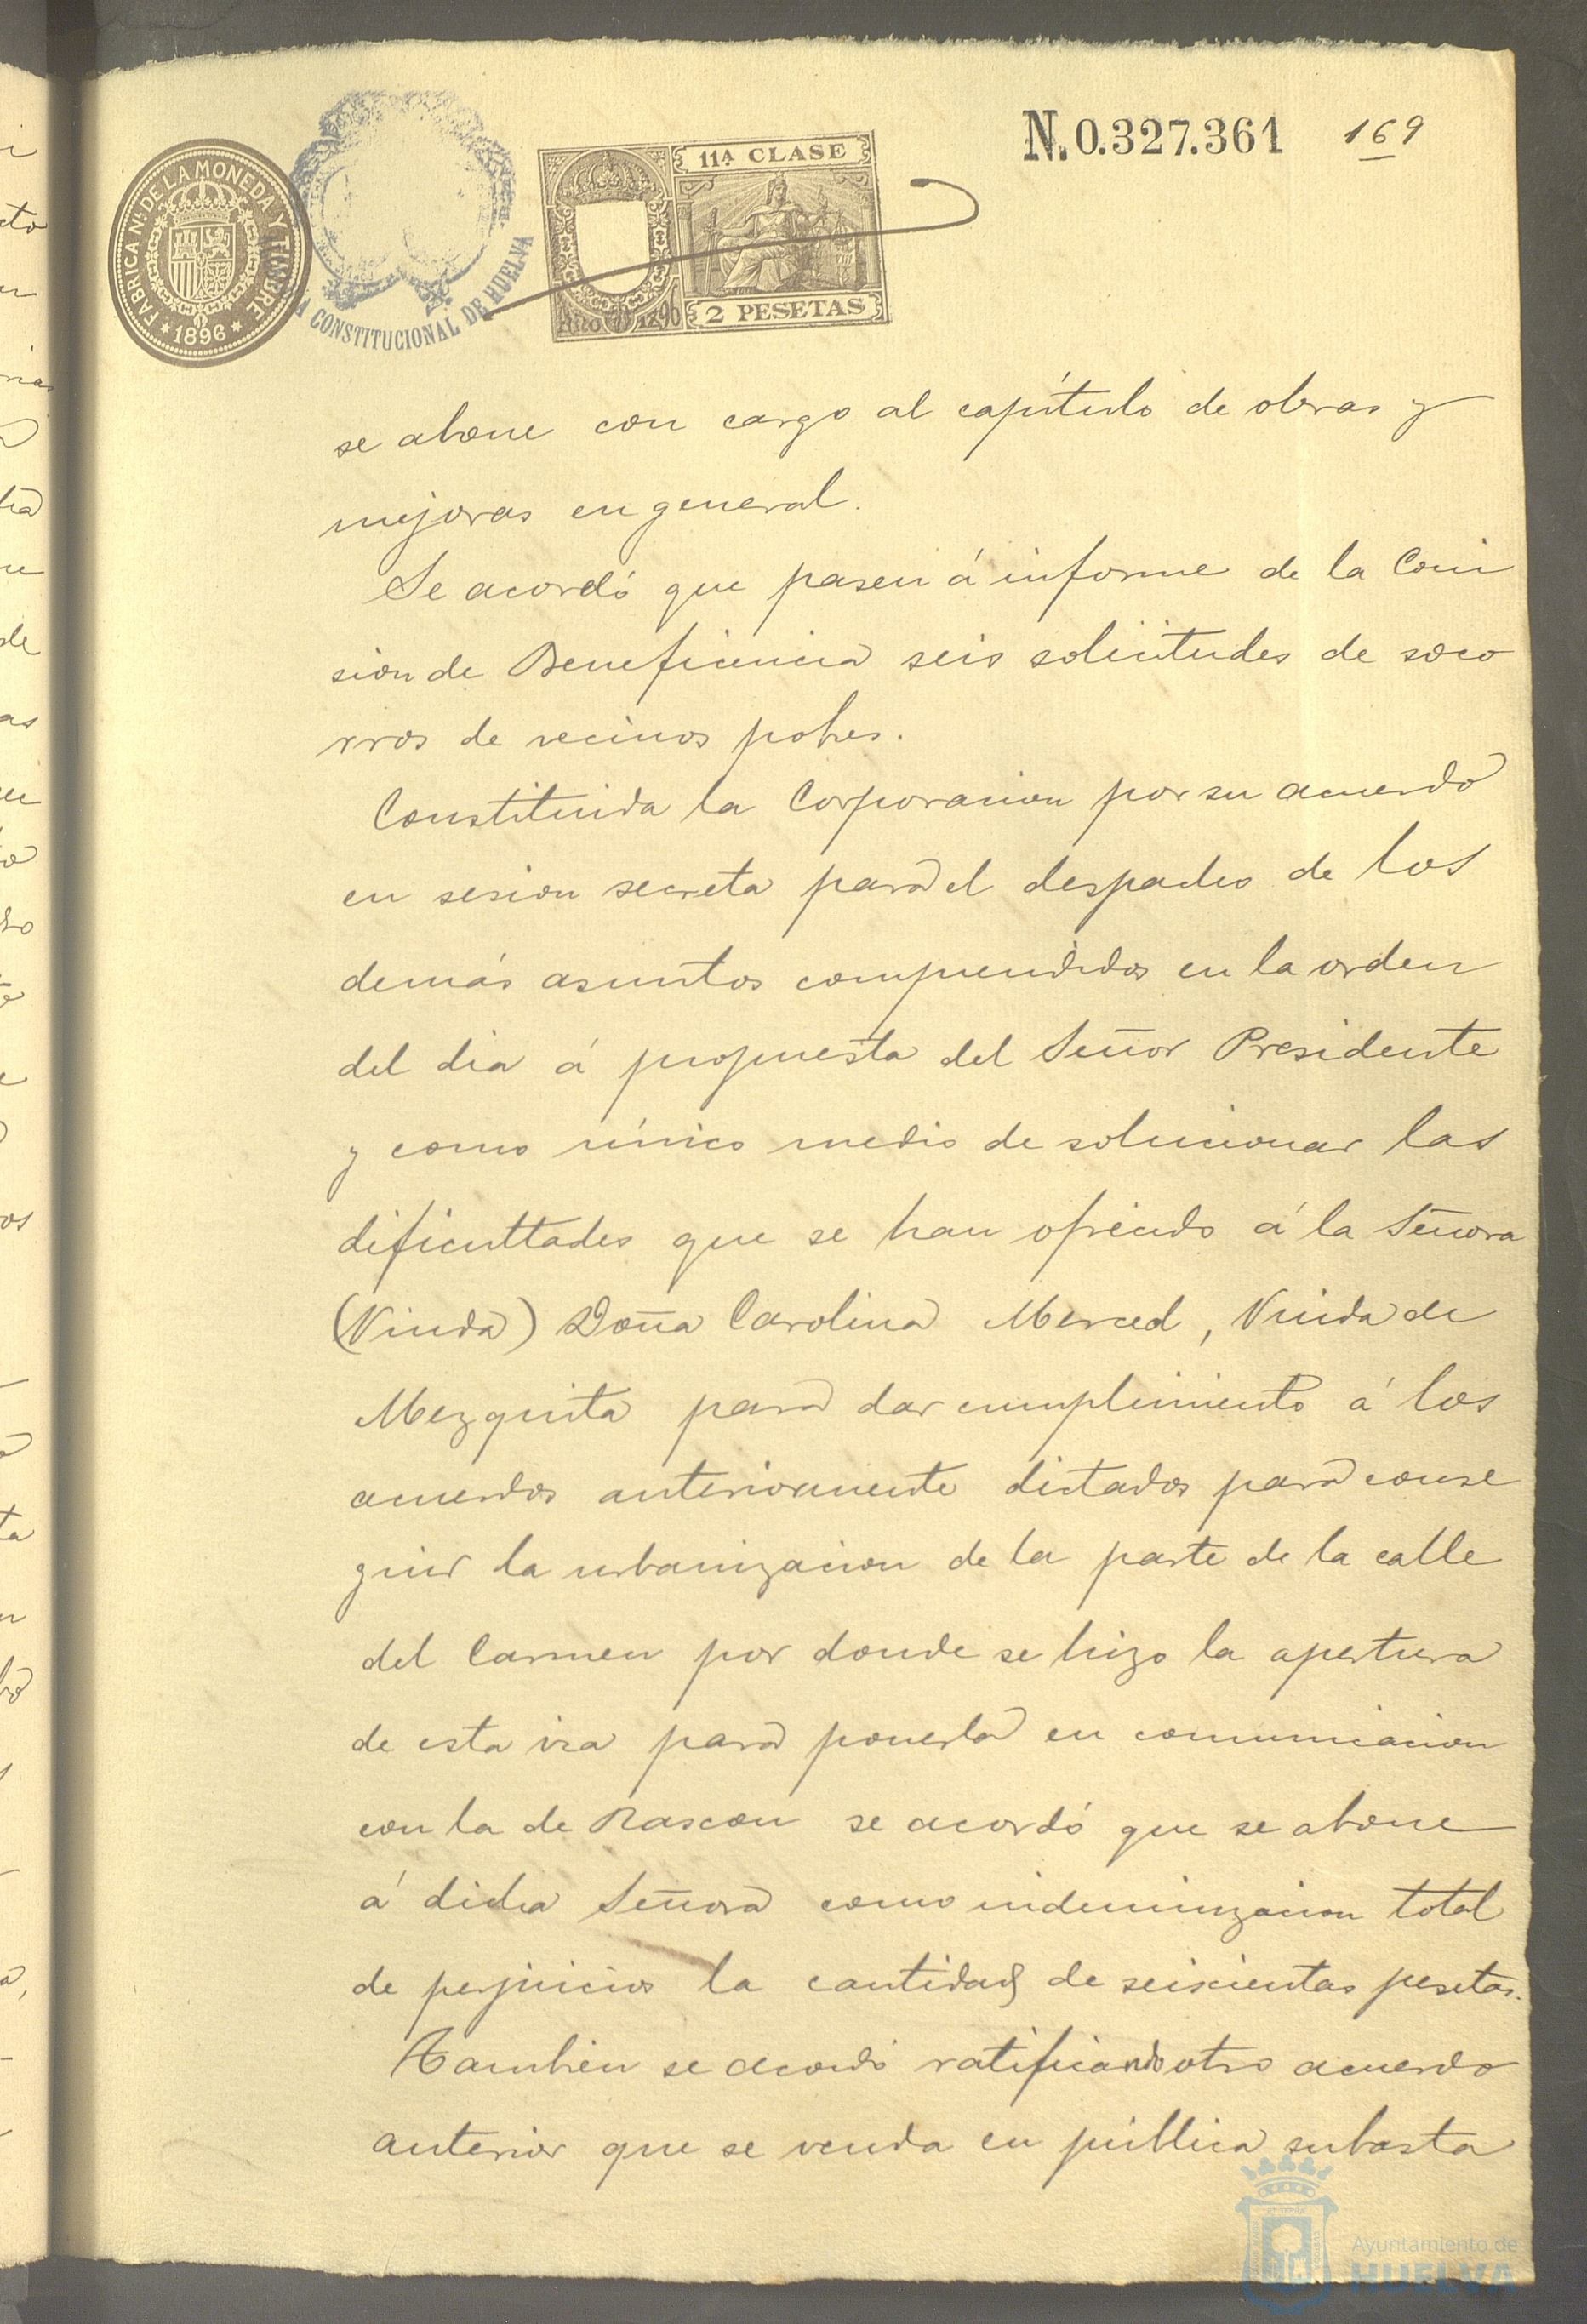 N. 0.327.361 169
FABRICA Nl. DE LA MONEDA Y TIMBRE
* 1896 *
A CONSTITUCIONAL DE HUELVA
11ª CLASE
2 PESETAS
se abone con cargo al capítulo de obras y
mejoras en general.
Se acordó que pasen á informe de la Comi
sion de Beneficencia seis solicitudes de soco
rros de vecinos pobres.
Constituida la Corporacion por su acuerdo
en sesion secreta para el despacho de los
demás asuntos comprendidos en la orden
del dia á propuesta del Señor Presidente
y como único medio de solucionar las
dificultades que se han ofrecido á la Señora
(Viuda) Doña Carolina Merced, Viuda de
Mezquita para dar cumplimiento á los
acuerdos anteriormente dictados para conse
guir la urbanizacion de la parte de la calle
del Carmen por donde se hizo la apertura
de esta via para ponerla en comunicacion
con la de Rascon se acordó que se abone
á dicha Señora como indemnizacion total
de perjuicios la cantidad de seiscientas pesetas.
Tambien se acordó ratificando otro acuerdo
anterior que se venda en pública subasta
Ayuntamiento de
HUELVA